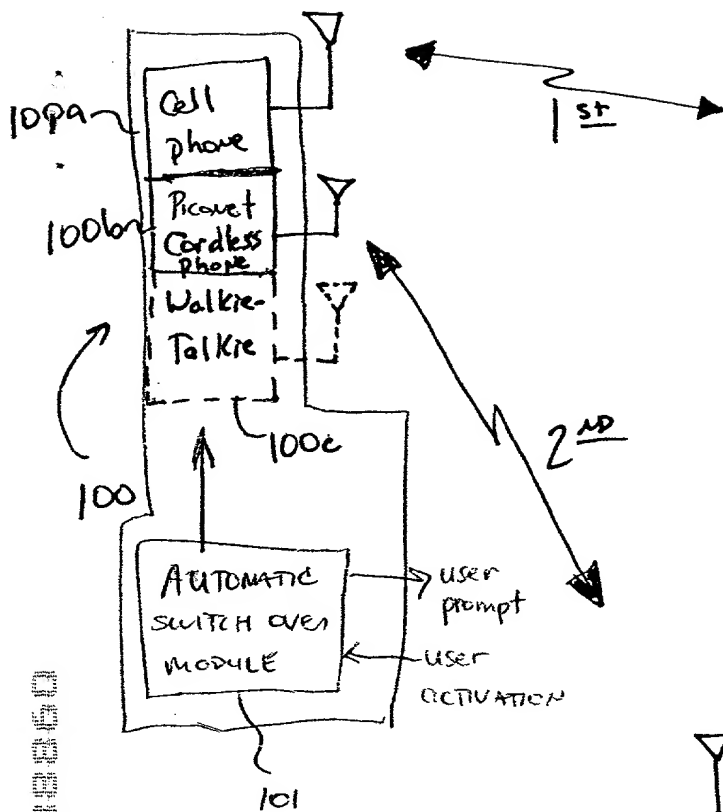 Cell
phone
100a
Piconet
Cordless
phone
100b
Walkie-
Talkie
100c
100
1st
2ND
AUTOMATIC
SWITCH OVER
MODULE
user
prompt
user
ACTIVATION
101